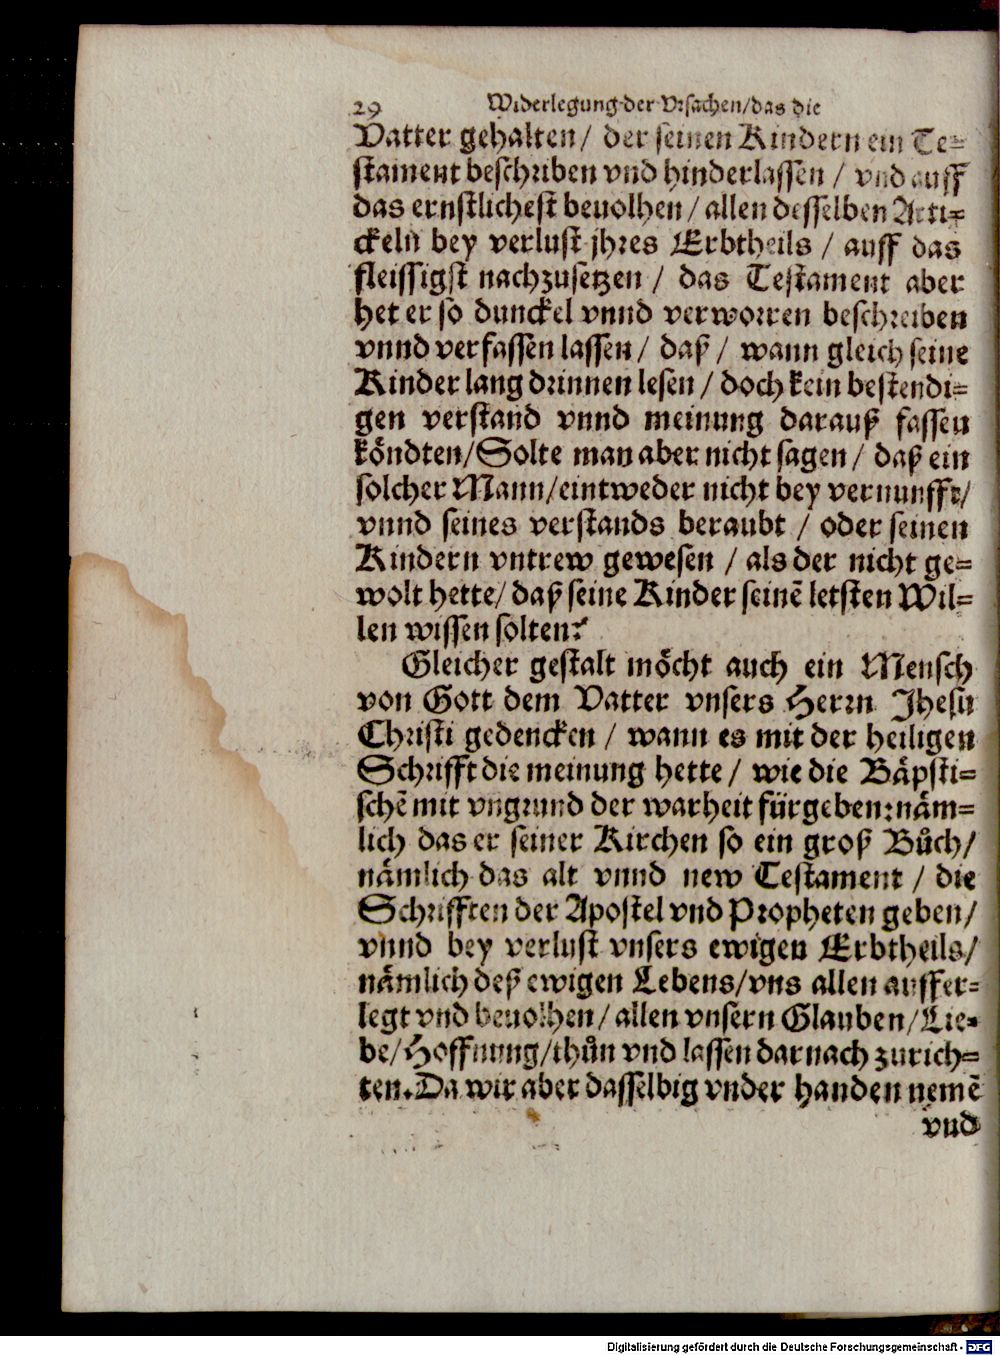 29 Widerlegung der Vrsachen/das die
Vatter gehalten/ der seinen Kindern ein Te=
stament beschriben vnd hinderlassen / vnd auff
das ernstlichest beuolhen/ allen desselben Arti=
ckeln bey verlust jhres Erbtheils / auff das
fleissigst nachzusetzen / das Testament aber
het er so dunckel vnnd verworren beschreiben
vnnd verfassen lassen/ daß / wann gleich seine
Kinder lang drinnen lesen / doch kein bestendi=
gen verstand vnnd meinung darauß fassen
köndten/Solte man aber nicht sagen/ daß ein
solcher Mann/eintweder nicht bey vernunfft/
vnnd seines verstands beraubt / oder seinen
Kindern vntrew gewesen / als der nicht ge=
wolt hette/ daß seine Kinder seinē letsten Wil=
len wissen solten?
Gleicher gestalt möcht auch ein Mensch
von Gott dem Vatter vnsers Herrn Jhesu
Christi gedencken / wann es mit der heiligen
Schrifft die meinung hette / wie die Bäpsti=
schē mit vngrund der warheit fürgeben:näm=
lich das er seiner Kirchen so ein groß Bůch/
nämlich das alt vnnd new Testament / die
Schrifften der Apostel vnd Propheten geben/
vnnd bey verlust vnsers ewigen Erbtheils/
nämlich deß ewigen Lebens/vns allen auffer=
legt vnd beuolhen/ allen vnsern Glauben/Lie=
be/Hoffnung/thůn vnd lassen darnach zurich=
ten. Da wir aber dasselbig vnder handen nemē
vnd
Digitalisierung gefördert durch die Deutsche Forschungsgemeinschaft - DFG